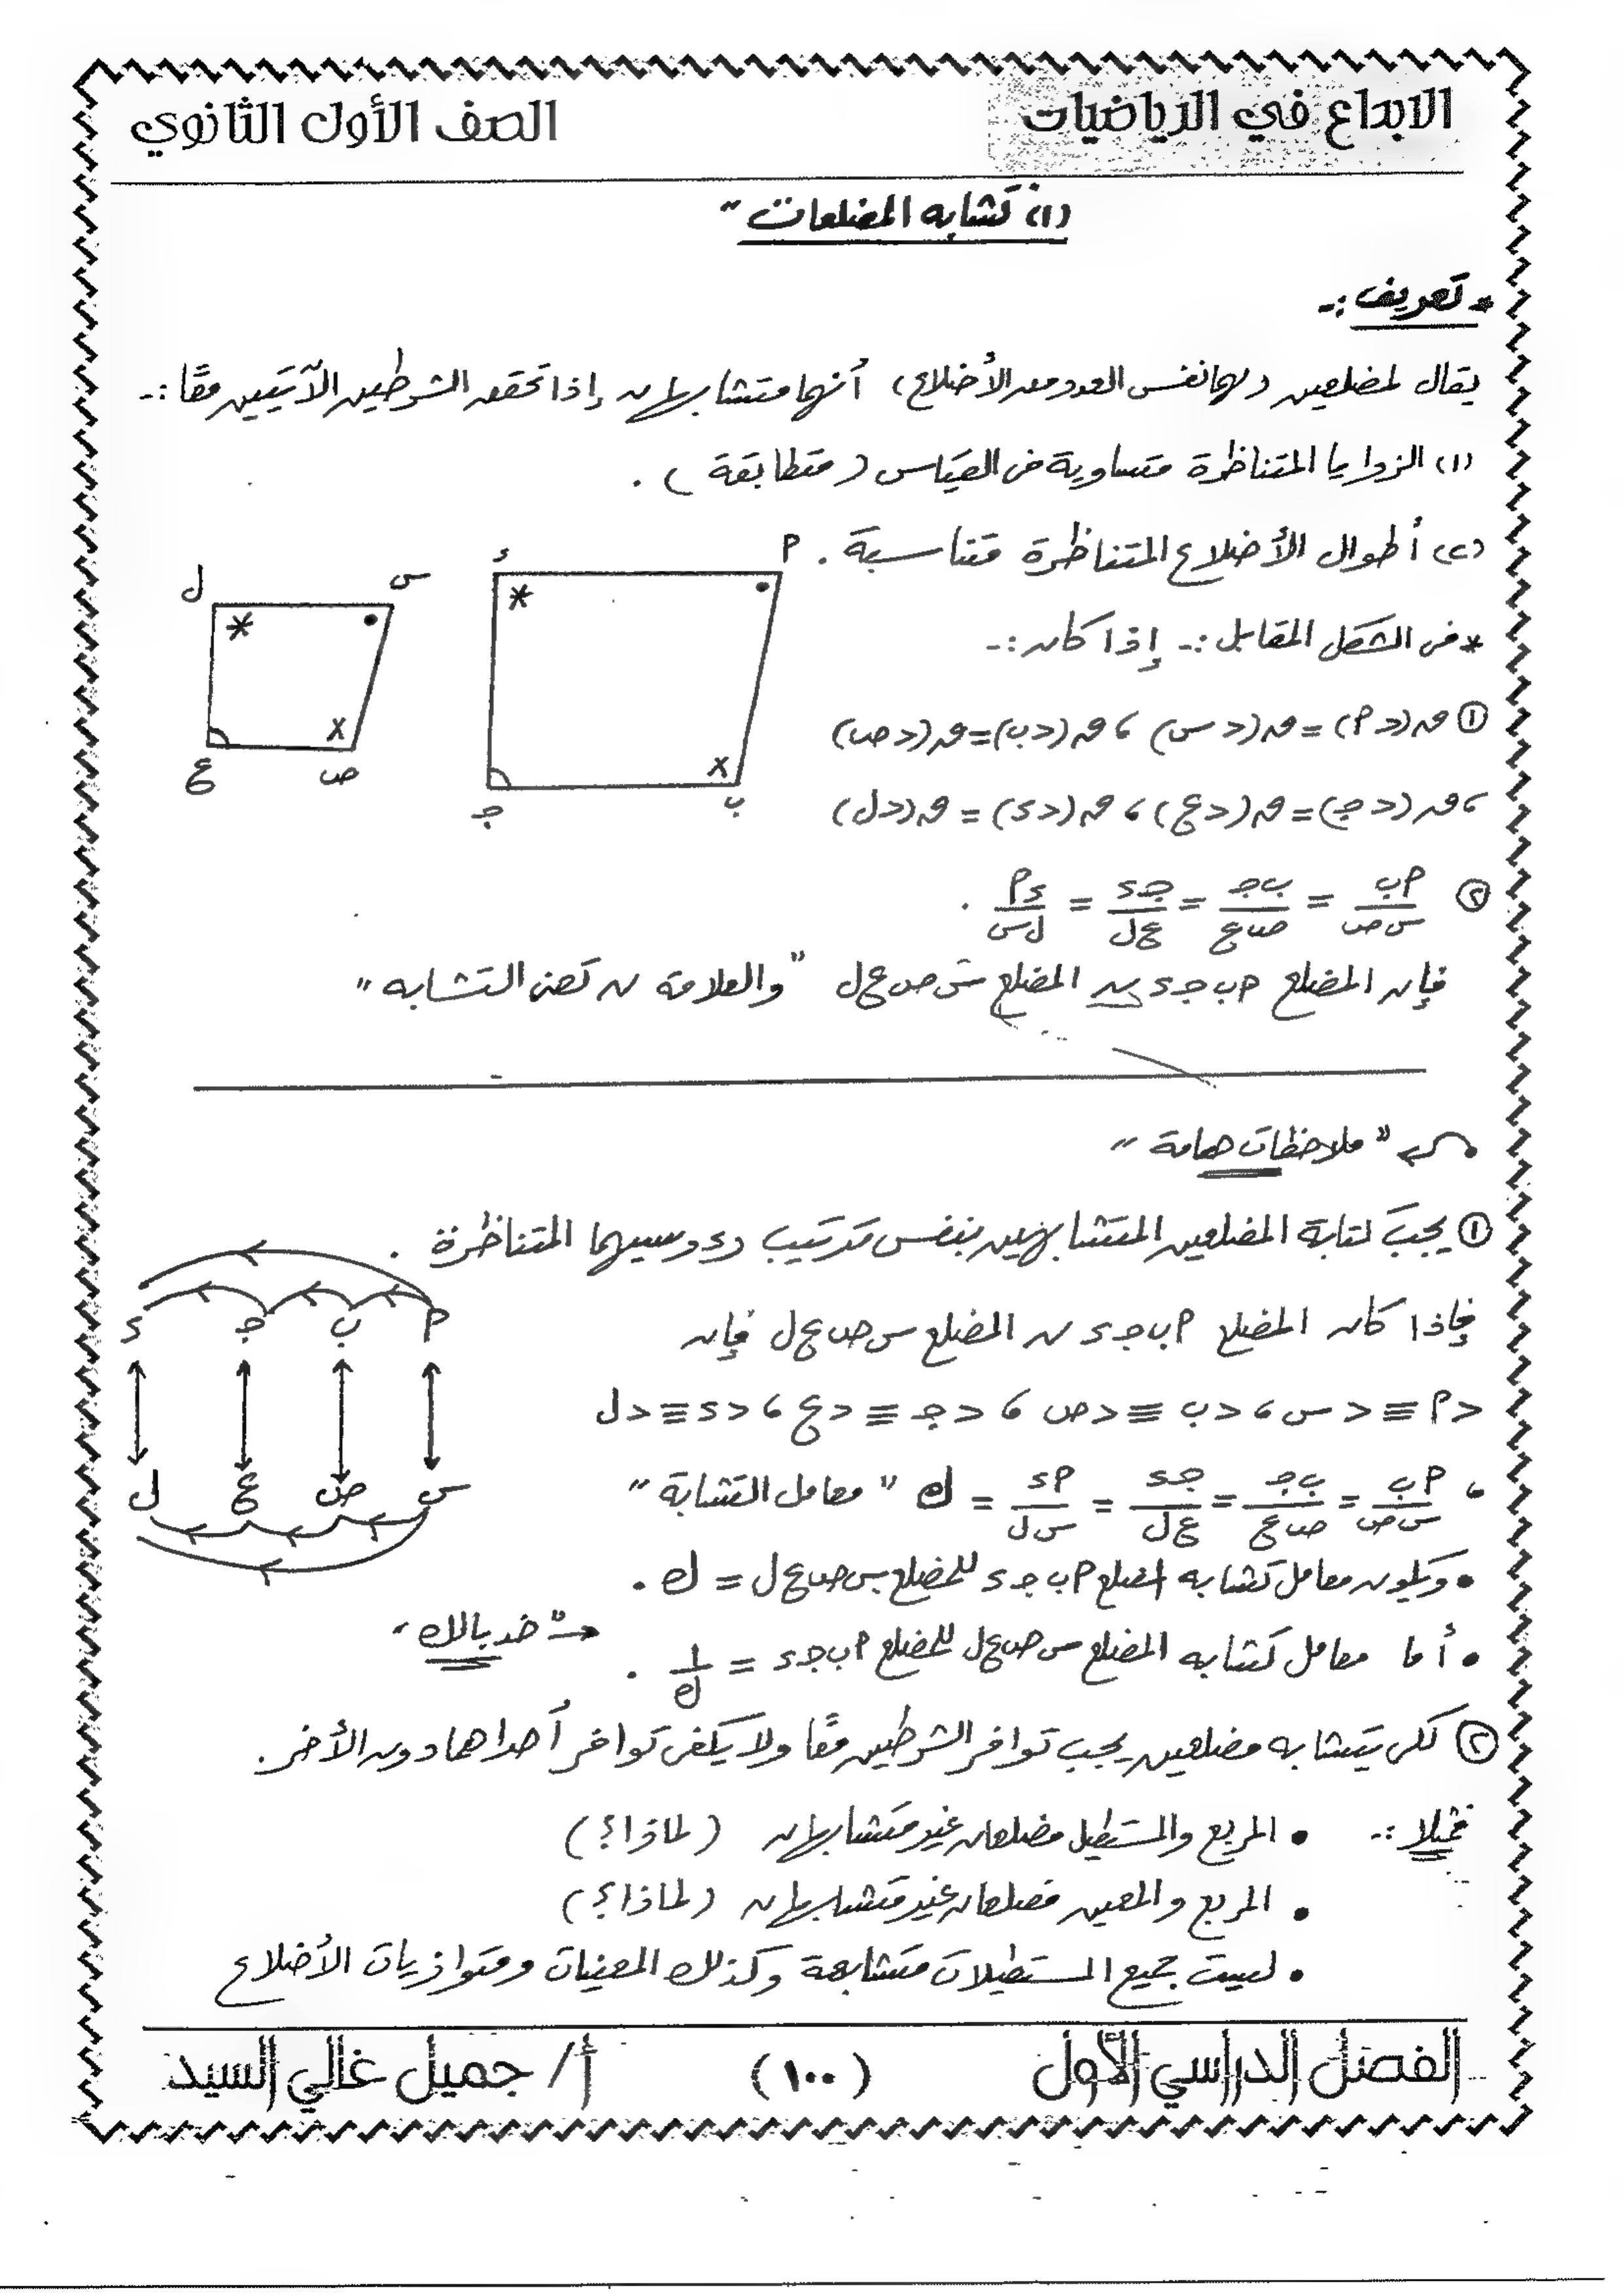 الابداع في الرياضيات
الصف الأول الثانوي
(١) تشابه المضلعات "
* تعريف :-
يقال لمضلعين (لهما نفس العدد من الأضلاع) أنهما متشابهان إذا تحقق الشرطين الآتيين معًا :-
(١) الزوايا المتناظرة متساوية فى القياس (متطابقة) .
(٢) أطوال الأضلاع المتناظرة متناسبة .
* فى الشكل المقابل :- إذا كان :-
① ق(د م) = ق(د س) ، ق(د ب) = ق(د ص)
، ق(د جـ) = ق(د ع) ، ق(د ء) = ق(د ل)
② م ب / س ص = ب جـ / ص ع = جـ ء / ع ل = ء م / ل س .
فإن المضلع م ب جـ ء ~ المضلع س ص ع ل " والعلامة ~ تعنى التشابه "
م
ء
*
•
x
ب
جـ
س
ل
*
•
x
ص
ع
" ملاحظات هامة "
① يجب كتابة المضلعين المتشابهين بنفس ترتيب رءوسيهما المتناظرة .
فإذا كان المضلع م ب جـ ء ~ المضلع س ص ع ل فإن
د م ≡ د س ، د ب ≡ د ص ، د جـ ≡ د ع ، د ء ≡ د ل
، م ب / س ص = ب جـ / ص ع = جـ ء / ع ل = م ء / س ل = ك " معامل التشابة "
م ب جـ ء
س ص ع ل
• ويكون معامل تشابه المضلع م ب جـ ء للمضلع س ص ع ل = ك .
• أما معامل تشابه المضلع س ص ع ل للمضلع م ب جـ ء = ١ / ك . → " خد بالك "
② لكى يتشابه مضلعين يجب توافر الشرطين معًا ولا يكفى توافر أحداهما دون الأخر .
فمثلا :- • المربع والمستطيل مضلعان غير متشابهان (لماذا؟)
• المربع والمعين مضلعان غير متشابهان (لماذا؟)
• ليست جميع المستطيلات متشابهة وكذلك المعينات ومتوازيات الأضلاع
الفصل الدراسي الأول
(١٠٠)
أ/ جميل غالي السيد